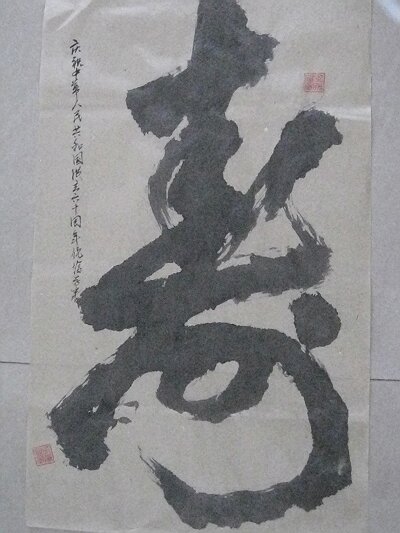 寿
庆祝中华人民共和国成立六十周年